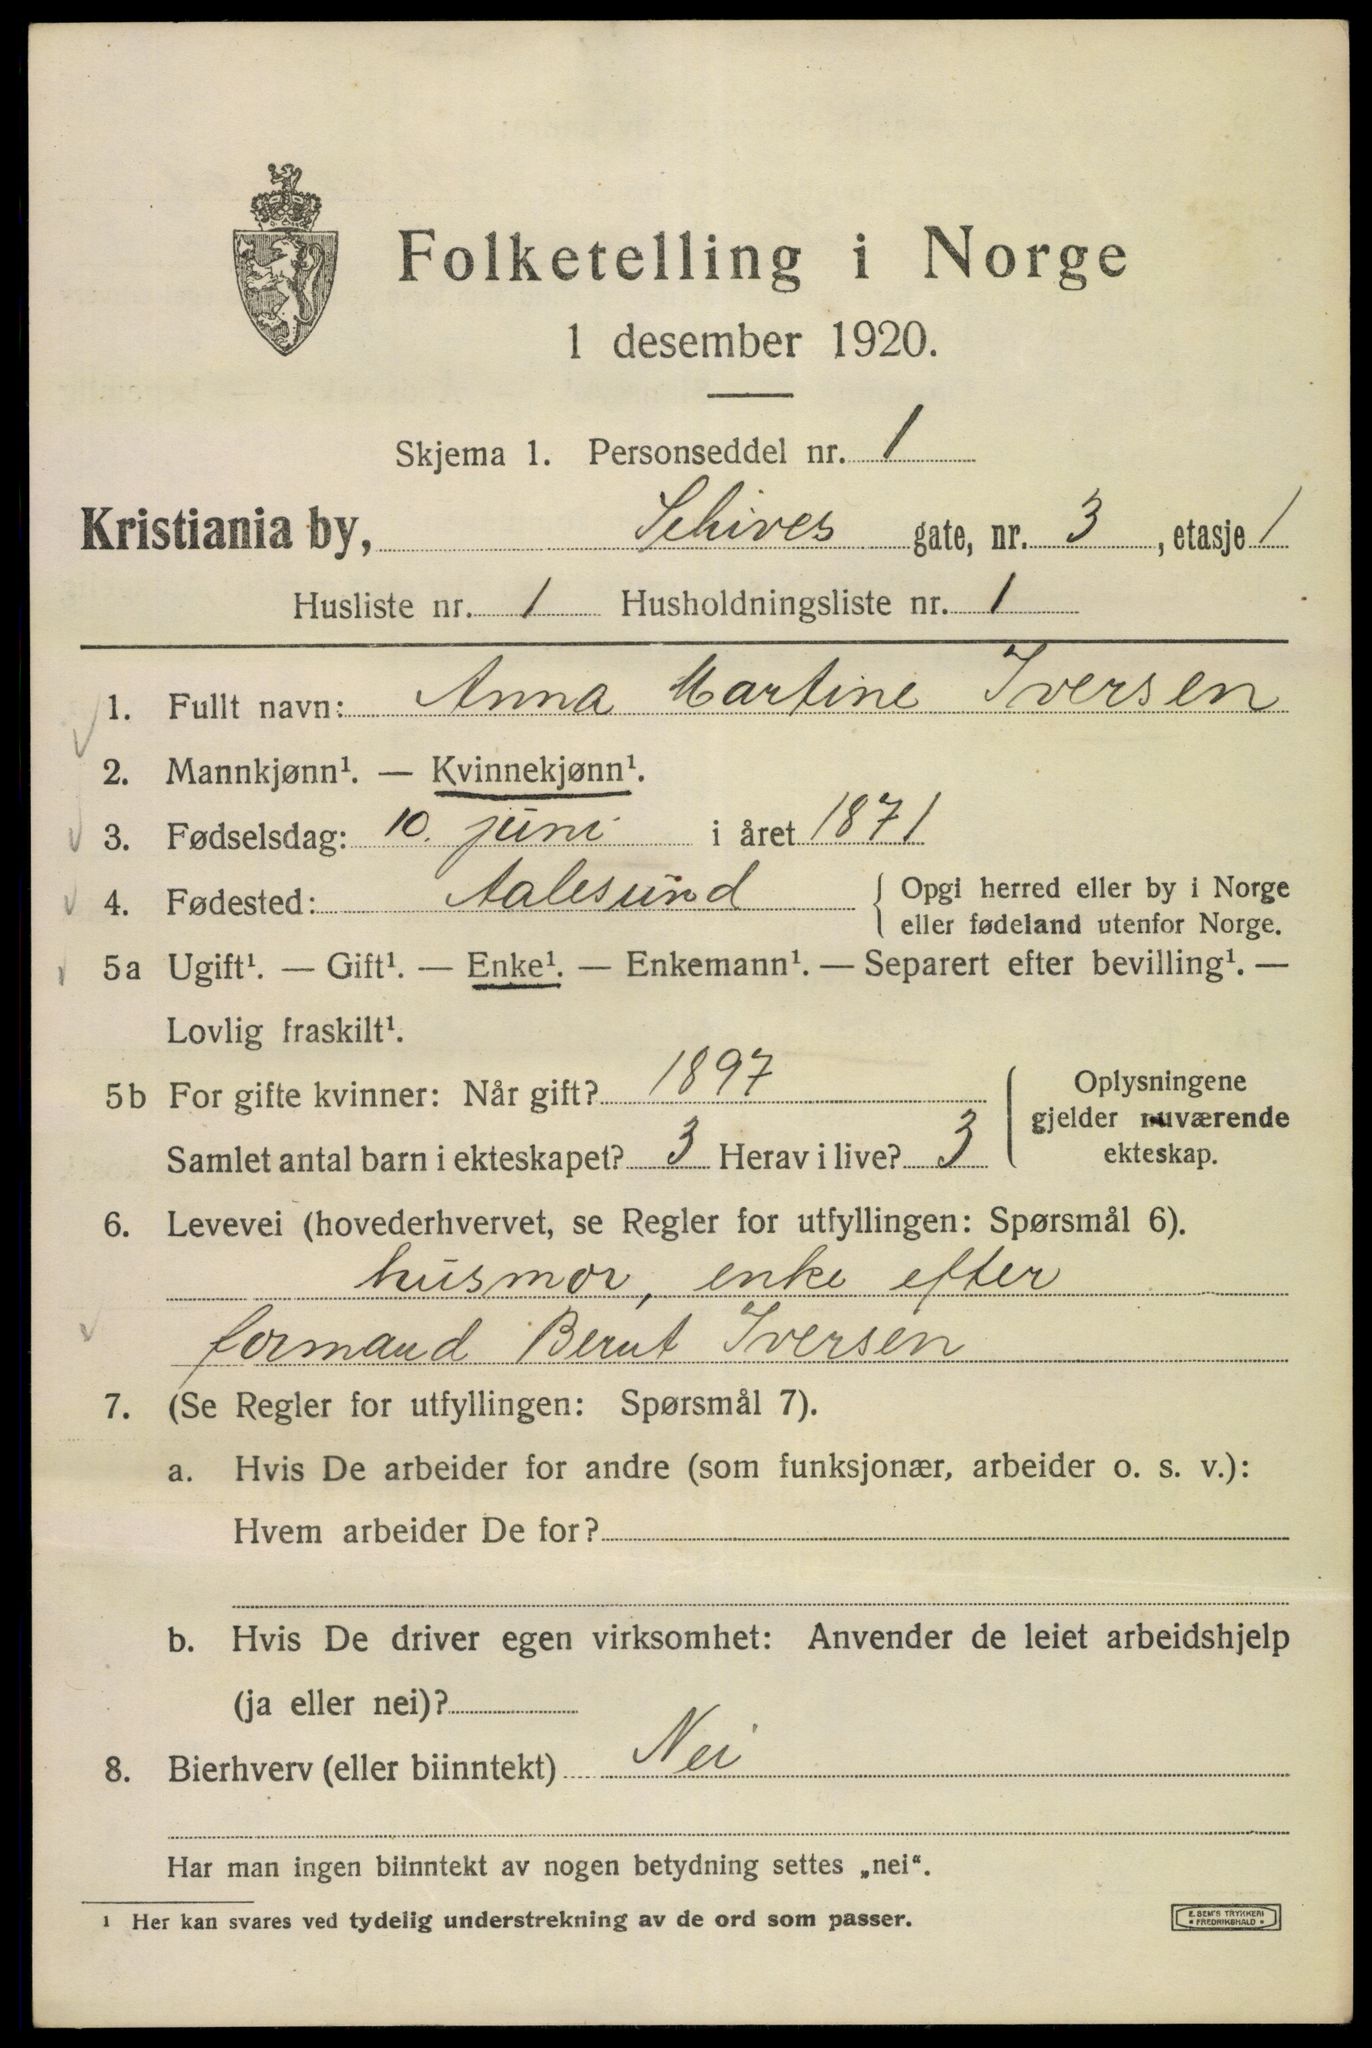 Folketelling i Norge
1 desember 1920.
Skjema 1. Personseddel nr. 1
Kristiania by, Schives gate, nr. 3, etasje 1
Husliste nr. 1 Husholdningsliste nr. 1
1. Fullt navn: Anna Martine Iversen
2. Mannkjønn¹. — Kvinnekjønn¹.
3. Fødselsdag: 10. juni i året 1871
4. Fødested: Aalesund { Opgi herred eller by i Norge
eller fødeland utenfor Norge.
5a Ugift¹. — Gift¹. — Enke¹. — Enkemann¹. — Separert efter bevilling¹. —
Lovlig fraskilt¹.
5b For gifte kvinner: Når gift? 1897
Samlet antal barn i ekteskapet? 3 Herav i live? 3
Oplysningene
gjelder nuværende
ekteskap.
6. Levevei (hovederhvervet, se Regler for utfyllingen: Spørsmål 6).
husmor, enke efter
formand Bernt Iversen
7. (Se Regler for utfyllingen: Spørsmål 7).
a. Hvis De arbeider for andre (som funksjonær, arbeider o. s. v.):
Hvem arbeider De for?
b. Hvis De driver egen virksomhet: Anvender de leiet arbeidshjelp
(ja eller nei)?
8. Bierhverv (eller biinntekt) Nei
Har man ingen biinntekt av nogen betydning settes „nei“.
¹ Her kan svares ved tydelig understrekning av de ord som passer.
E. SEM'S TRYKKERI
• FREDRIKSHALD •